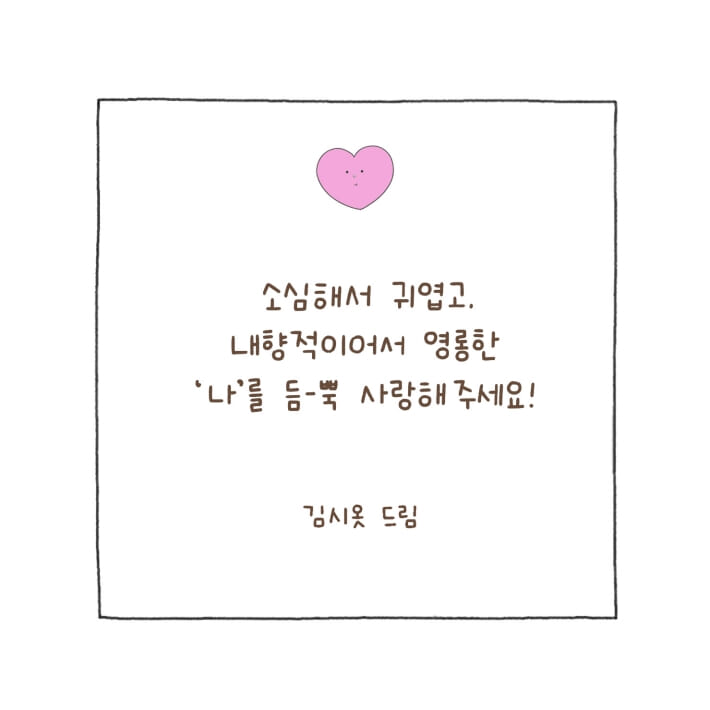 소심해서 귀엽고,
내향적이어서 영롱한
‘나’를 듬-뿍 사랑해주세요!
김시옷 드림